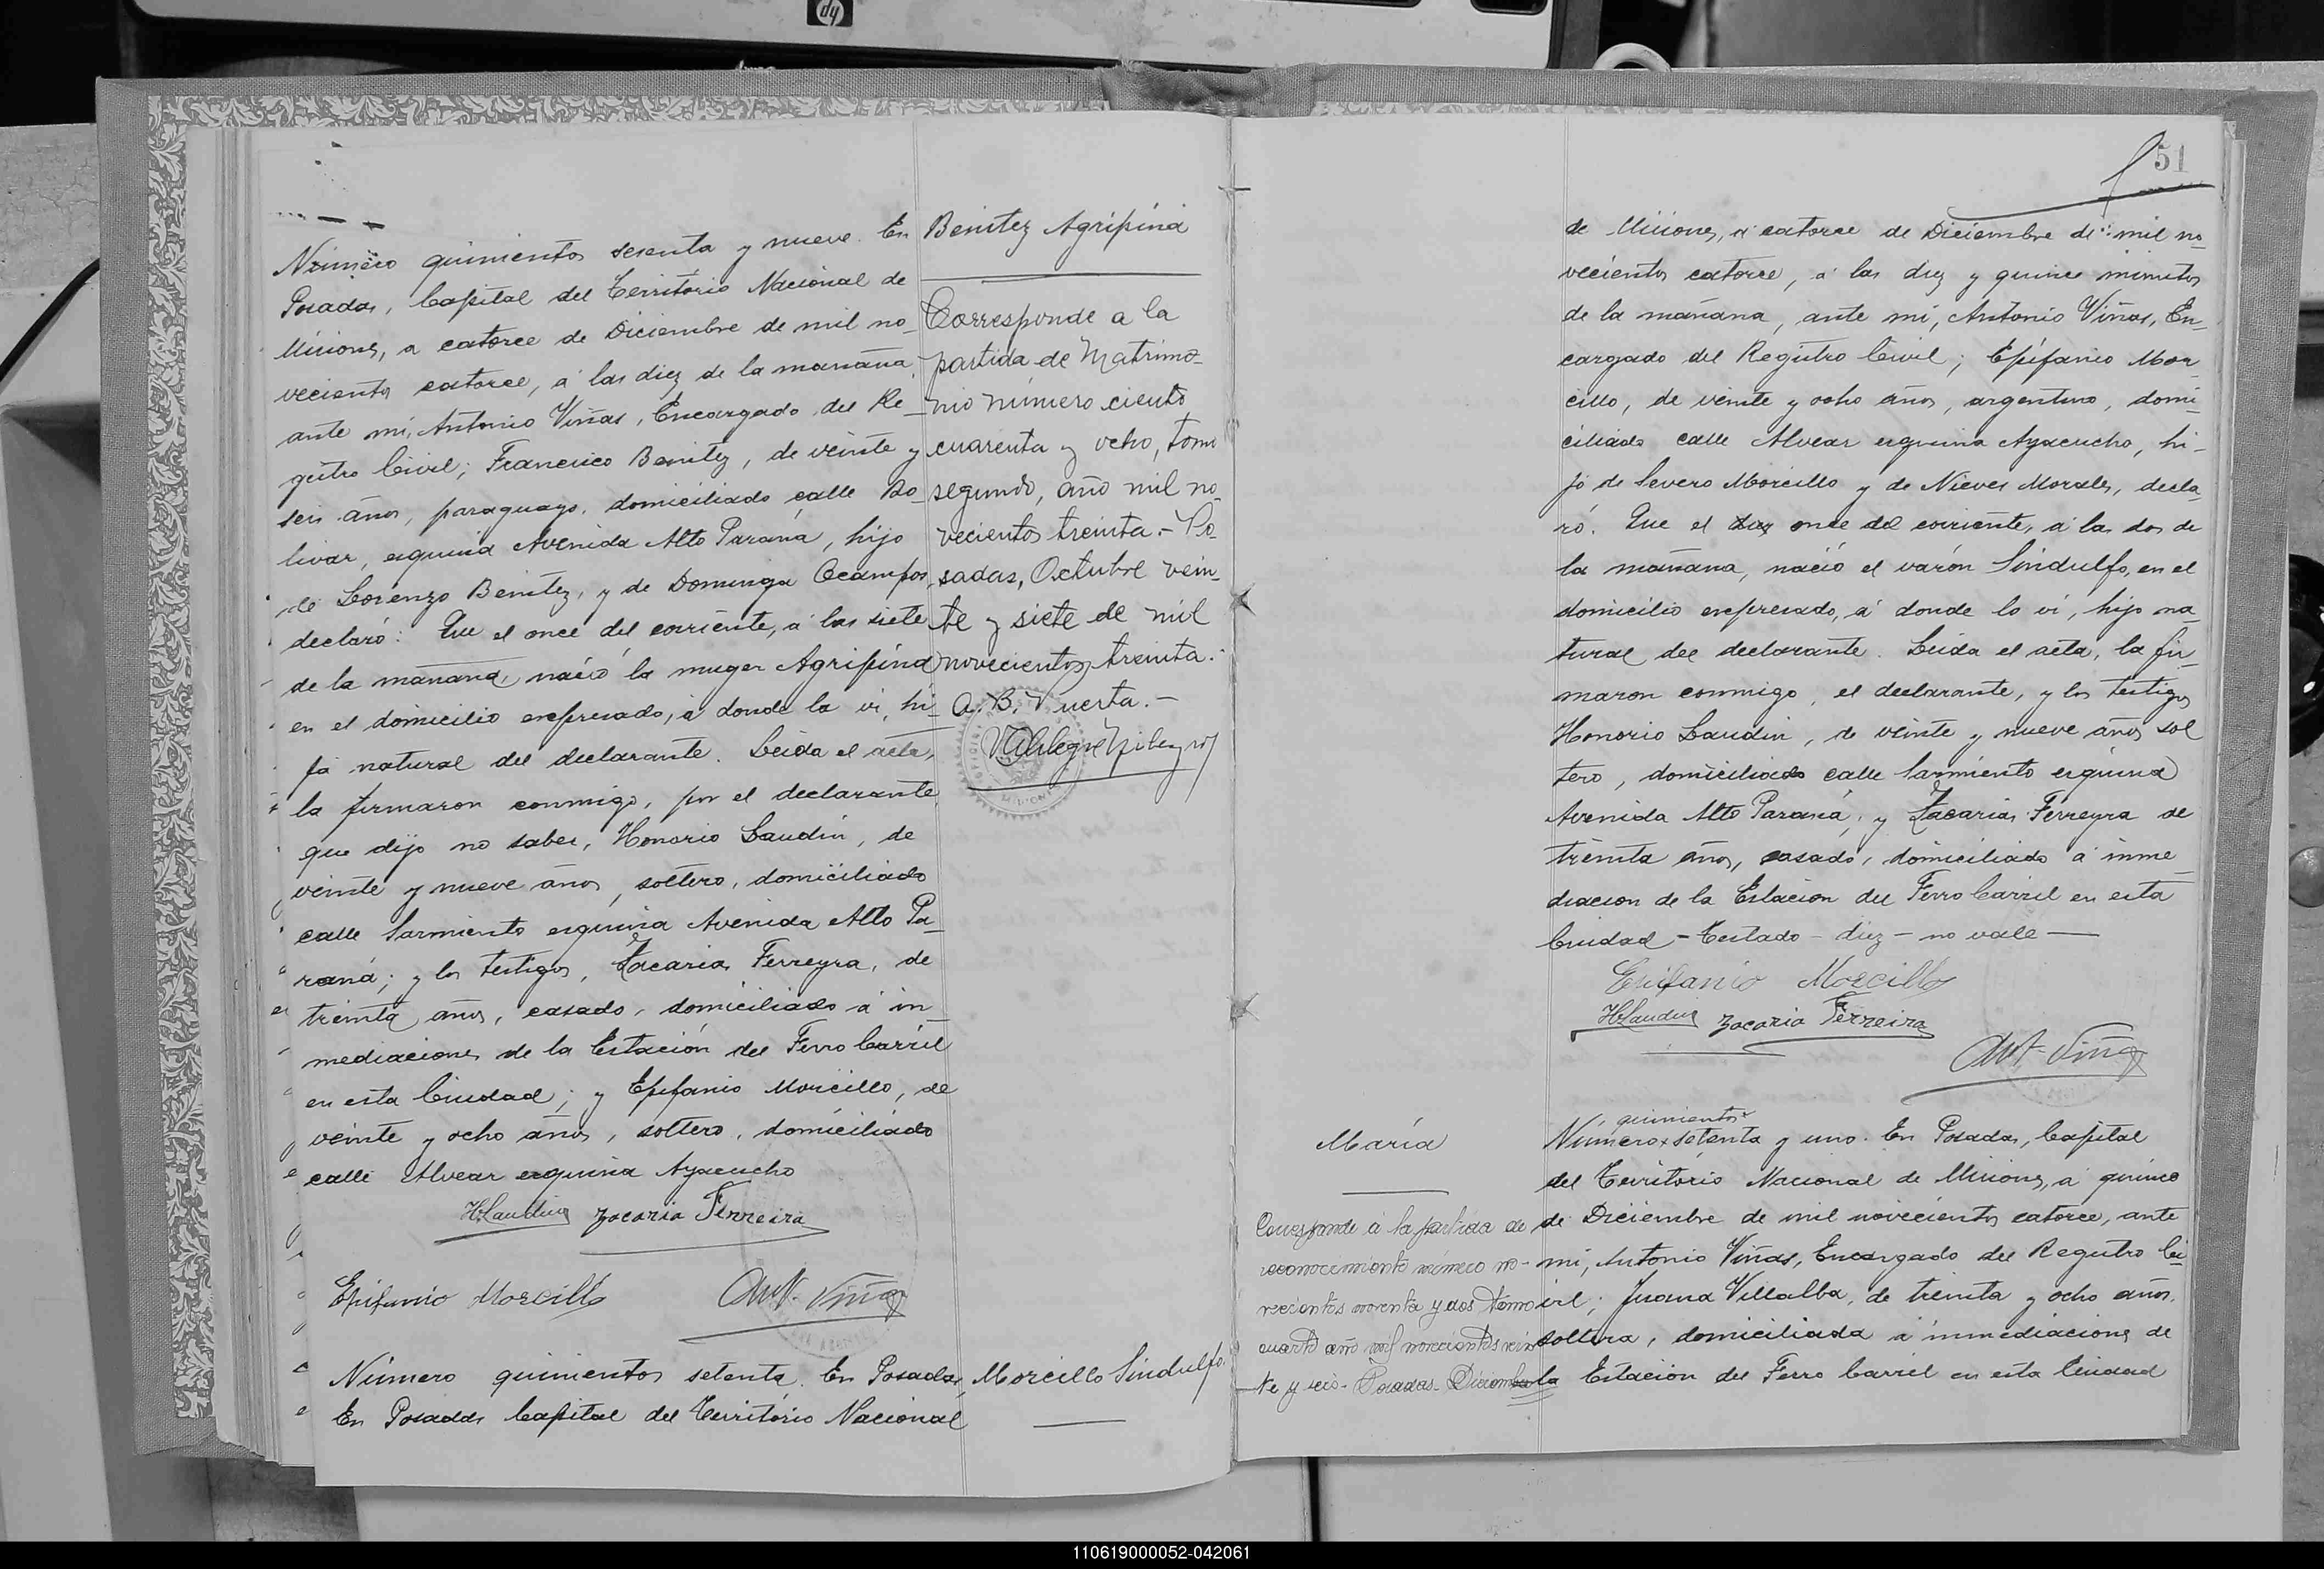 hp
Número quinientos sesenta y nueve. En
Posadas, Capital del Territorio Nacional de
Misiones, a catorce de Diciembre de mil no-
vecientos catorce, á las diez de la mañana
ante mi, Antonio Viñas, Encargado del Re-
gistro Civil; Francisco Benitez, de veinte y
seis años, paraguayo, domiciliado calle Bo-
livar, esquina Avenida Alto Paraná, hijo
de Lorenzo Benitez, y de Dominga Ocampos,
declaró: Que el once del corriente, á las siete
de la mañana, nació la muger Agripina
en el domicilio expresado, á donde la vi, hi-
ja natural del declarante. Leida el acta,
la firmaron conmigo, por el declarante
que dijo no saber, Honorio Laudin, de
veinte y nueve años, soltero, domiciliado
calle Sarmiento esquina Avenida Alto Pa-
raná; y los testigos, Zacarias Ferreyra, de
treinta años, casado, domiciliado á in-
mediaciones de la Estación del Ferro Carril
en esta Ciudad; y Epifanio Morcillo, de
veinte y ocho años, soltero, domiciliado
calle Alvear esquina Ayacucho
HLaudin Zacaria Ferreira
Epifanio Morcillo Ant. Viñas
Número quinientos setenta. En Posadas,
En Posadas Capital del Territorio Nacional
Benitez Agripina
Corresponde a la
partida de Matrimo-
nio número ciento
cuarenta y ocho, tomo
segundo, año mil no-
vecientos treinta.- Po-
sadas, Octubre vein-
te y siete de mil
novecientos treinta.
A. B. Vuerta.-
Morcillo Sindulfo.
51
de Misiones, á catorce de Diciembre de mil no-
vecientos catorce, á las diez y quince minutos
de la mañana, ante mi, Antonio Viñas, En-
cargado del Registro Civil; Epifanio Mor-
cillo, de veinte y ocho años, argentino, domi-
ciliado calle Alvear esquina Ayacucho, hi-
jo de Severo Morcillo y de Nieves Morales, decla-
ró. Que el diez once del corriente, á las dos de
la mañana, nació el varón Sindulfo, en el
domicilio expresado, á donde lo vi, hijo na-
tural del declarante. Leida el acta, la fir-
maron conmigo, el declarante, y los testigos
Honorio Laudin, de veinte y nueve años sol
tero, domiciliado calle Sarmiento esquina
Avenida Alto Paraná, y Zacarias Ferreyra de
treinta años, casado, domiciliado á inme
diacion de la Estacion del Ferro Carril en esta
Ciudad - Testado - diez - no vale -
Epifanio Morcillo
HLaudin Zacaria Ferreira
Ant. Viñas
María
Corresponde á la partida de
reconocimiento número no-
vecientos noventa y dos tomo
cuarto año mil novecientos vein
te y seis - Posadas - Diciembre
quinientos
Número setenta y uno. En Posadas, Capital
del Territorio Nacional de Misiones, á quince
de Diciembre de mil novecientos catorce, ante
mi, Antonio Viñas, Encargado del Registro Ci
vil; Juana Villalba, de treinta y ocho años,
soltera, domiciliada á inmediaciones de
la Estación del Ferro Carril en esta Ciudad
110619000052-042061